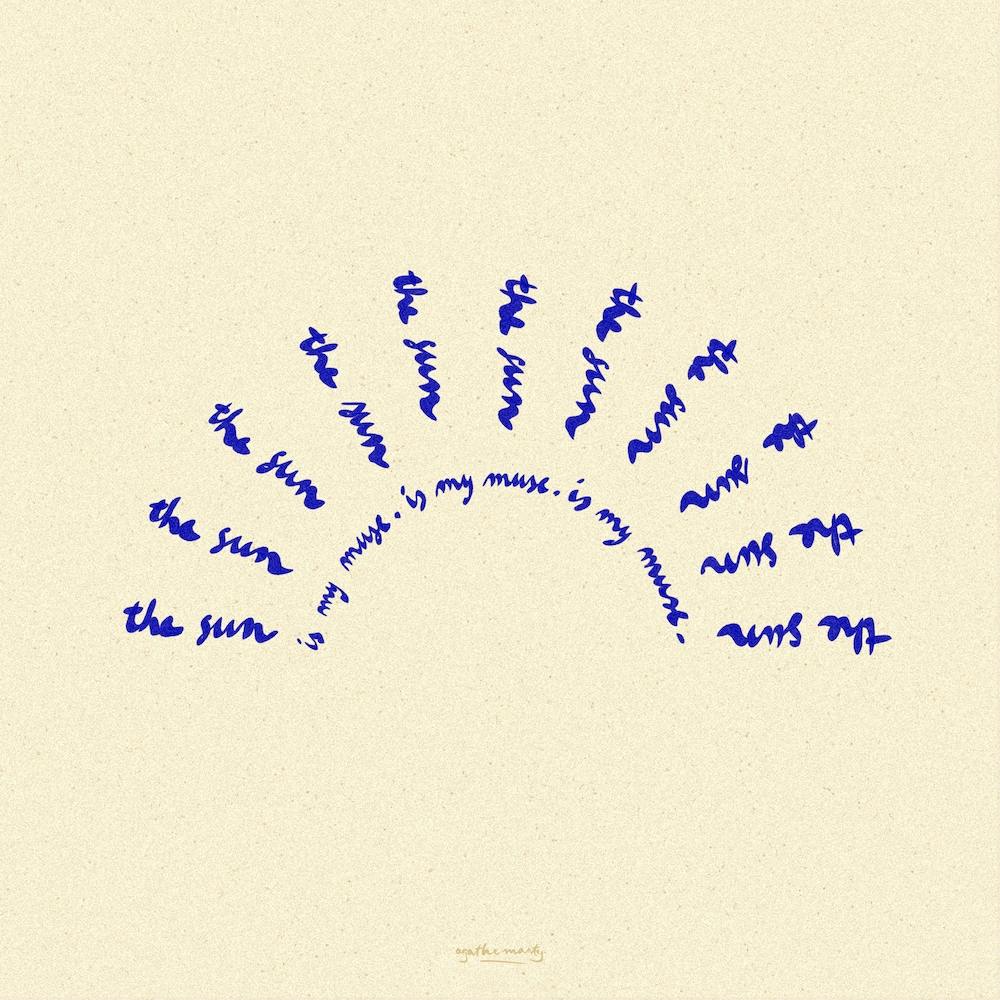 the sun
the sun
the sun
the sun
the sun
the sun
the sun
the sun
the sun
the sun
the sun
is my muse. is my muse. is my muse.
agathe marty